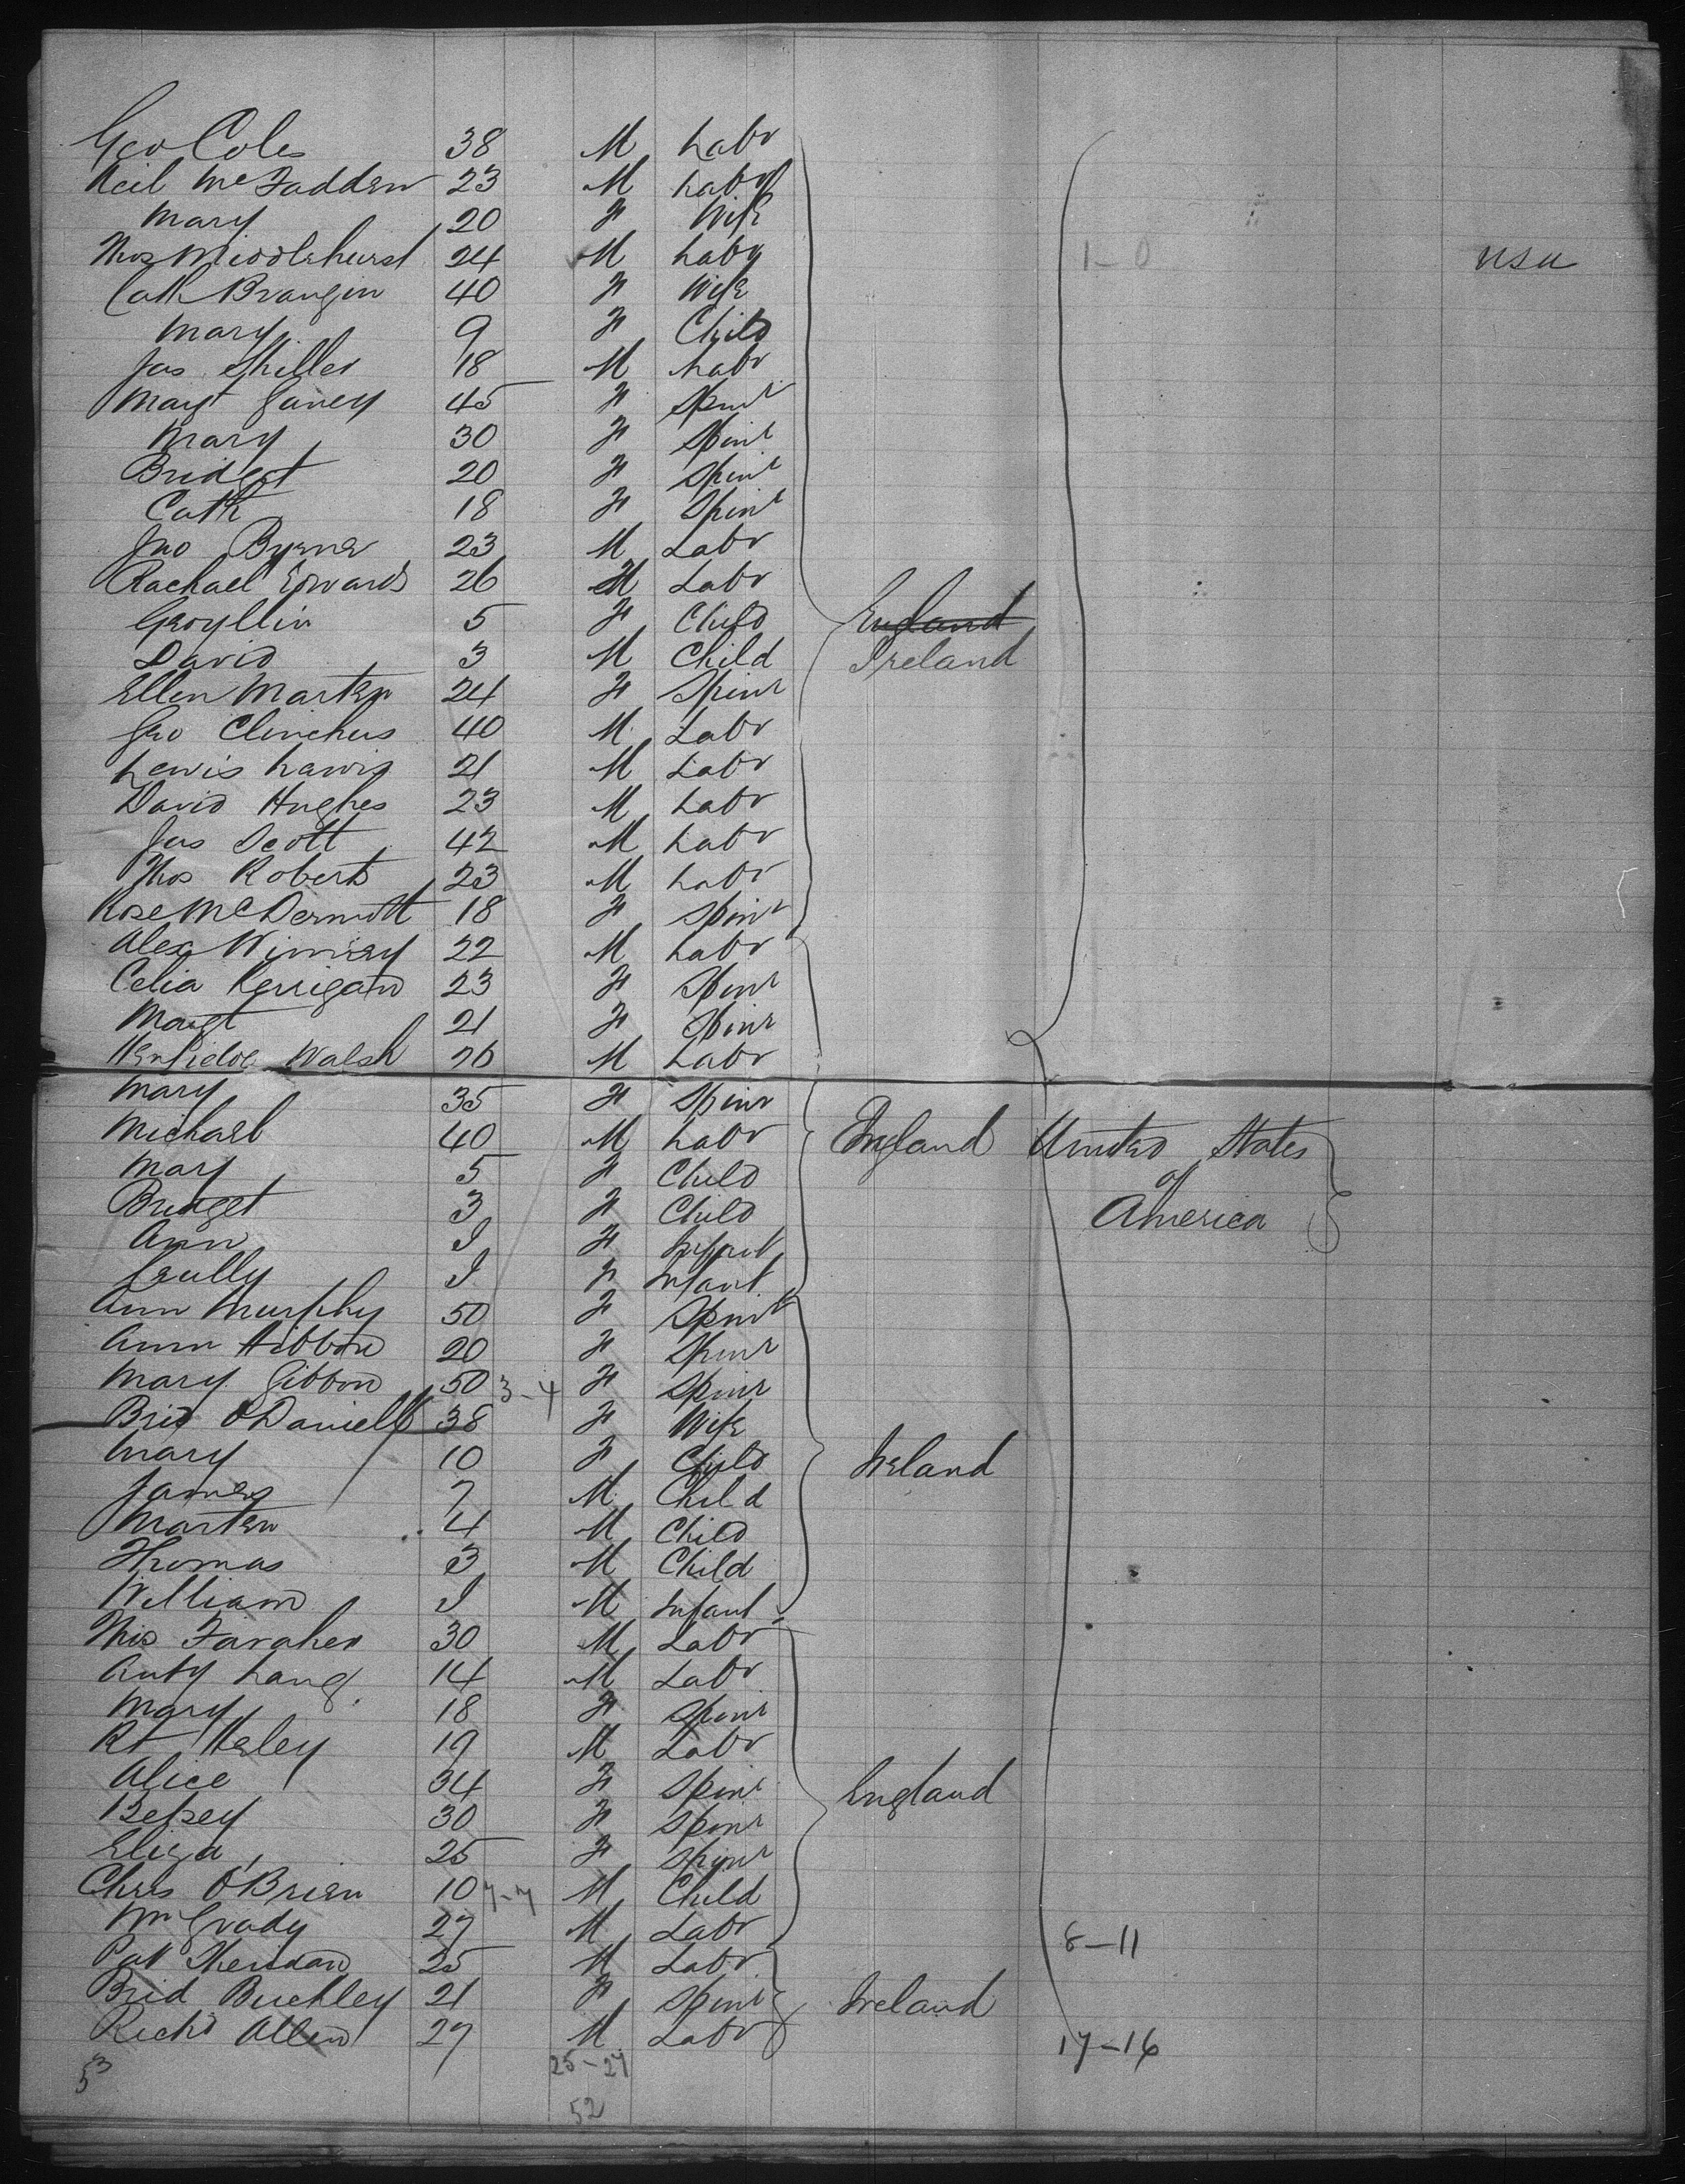 Geo Coles 38 M Labr
Neil McFadden 23 M Labr
Mary 20 F Wife
Thos Middlehurst 24 M Labr 1-0 USA
Cath Brangen 40 F Wife
Mary 9 F Child
Jas Shiller 18 M Labr
Margt Garvey 45 F Spinr
Mary 30 F Spinr
Bridget 20 F Spinr
Cath 18 F Spinr
Jno Byrne 23 M Labr
Rachael Edwards 26 M Labr
5 F Child England
David 3 M Child Ireland
Ellen Marten 24 F Spinr
Geo 40 M Labr
Lewis Lewis 21 M Labr
David Hughes 23 M Labr
Jas Scott 42 M Labr
Thos Roberts 23 M Labr
Rose McDermott 18 F Spinr
Alex 22 M Labr
Celia Kerrigan 23 F Spinr
Margt 21 F Spinr
Walsh 26 M Labr
Mary 35 F Spinr
Michael 40 M Labr England United States
Mary 5 F Child of
Bridget 3 F Child America
Ann I F Infant
I F Infant
Ann Murphy 50 F Spinr
Ann Gibbon 20 F Spinr
Mary Gibbon 50 3-4 F Spinr
Brid O'Daniell 38 F Wife
Mary 10 F Child Ireland
James 7 M Child
Marten 4 M Child
Thomas 3 M Child
William I M Infant
Thos Faraher 30 M Labr
Anty Lang 14 M Labr
Mary 18 F Spinr
Rt Heley 19 M Labr
Alice 34 F Spinr England
Betsey 30 F Spinr
Eliza 25 F Spinr
Chrs O'Brien 10 7-7 M Child
Wm Grady 27 M Labr 8-11
Patk Sheridan 25 M Labr
Brid Buckley 21 F Spinr Ireland
Richd Allen 27 M Labr 17-16
53 25-27
52